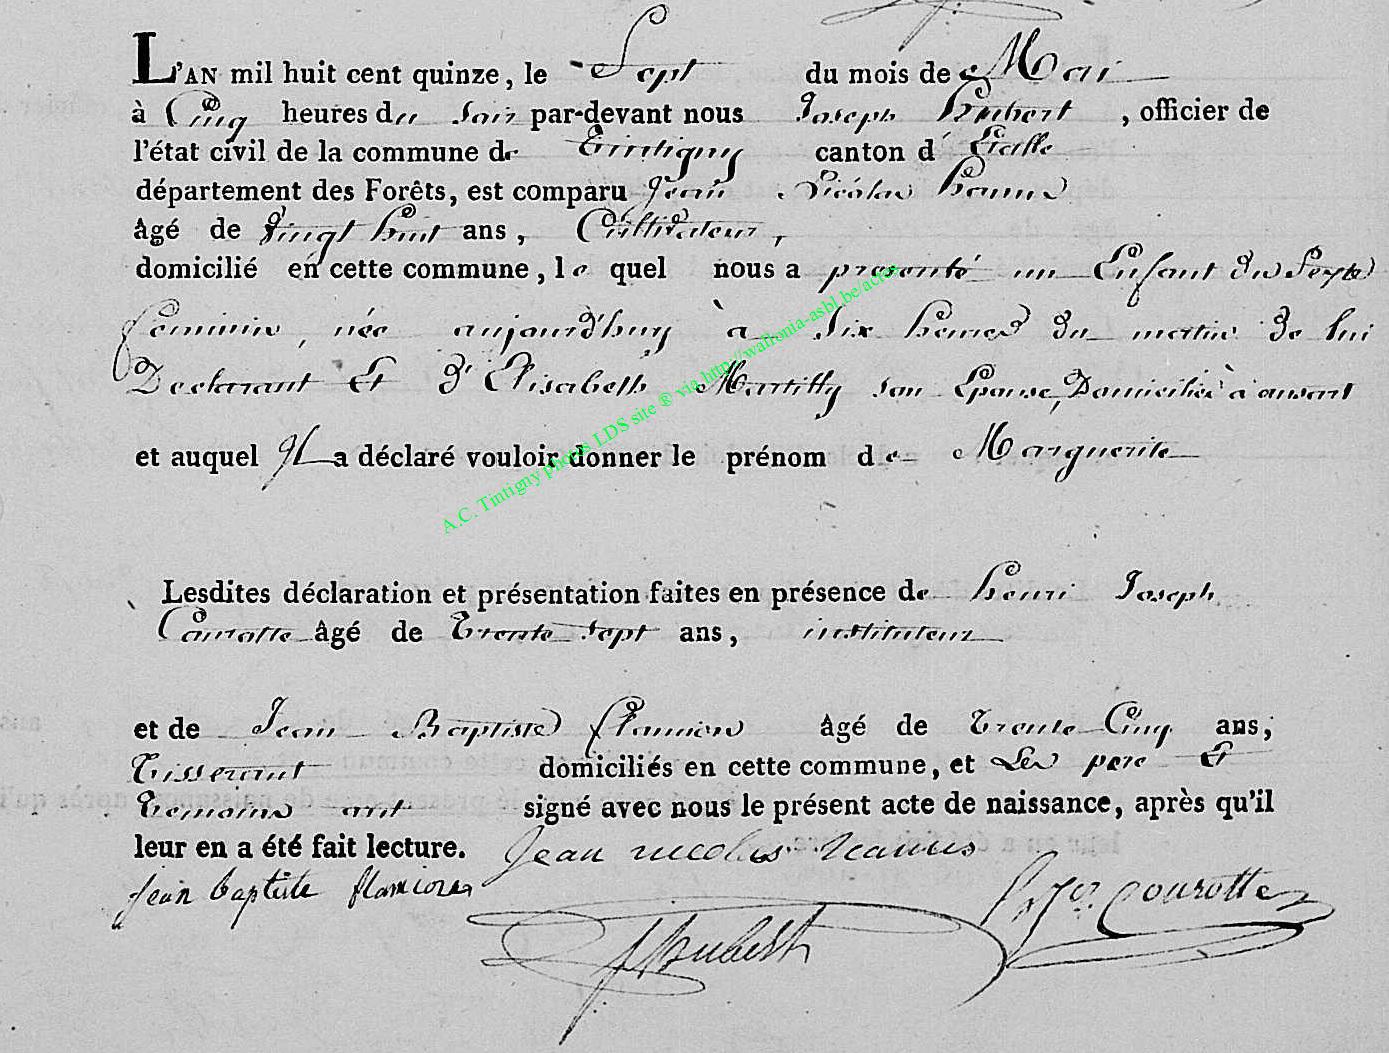 L'AN mil huit cent quinze, le Sept du mois de Mai
à Cinq heures du soir par-devant nous Joseph hubert, officier de
l'état civil de la commune de Tintigny canton d'Etalle
département des Forêts, est comparu Jean Nicolas hanus
âgé de Vingt huit ans, Cultivateur,
domicilié en cette commune, le quel nous a presenté un Enfant du Sexe
feminin, née aujourd'huy à Six heures du matin de lui
Declarant Et d'Elisabeth Martilly son Epouse, Domiciliée à ansart
et auquel Il a déclaré vouloir donner le prénom de Marguerite
Lesdites déclaration et présentation faites en présence de henri Joseph
Courotte âgé de Trente Sept ans, instituteur
et de Jean Baptiste flamion âgé de Trente Cinq ans;
Tisserant domiciliés en cette commune, et Les pere Et
Temoins ont signé avec nous le présent acte de naissance, après qu'il
leur en a été fait lecture. Jean nicolas hanus
jean baptiste flamion
hubert
h. Jos. Courotte
A.C. Tintigny photos LDS site ® via http://wallonia-asbl.be/actes